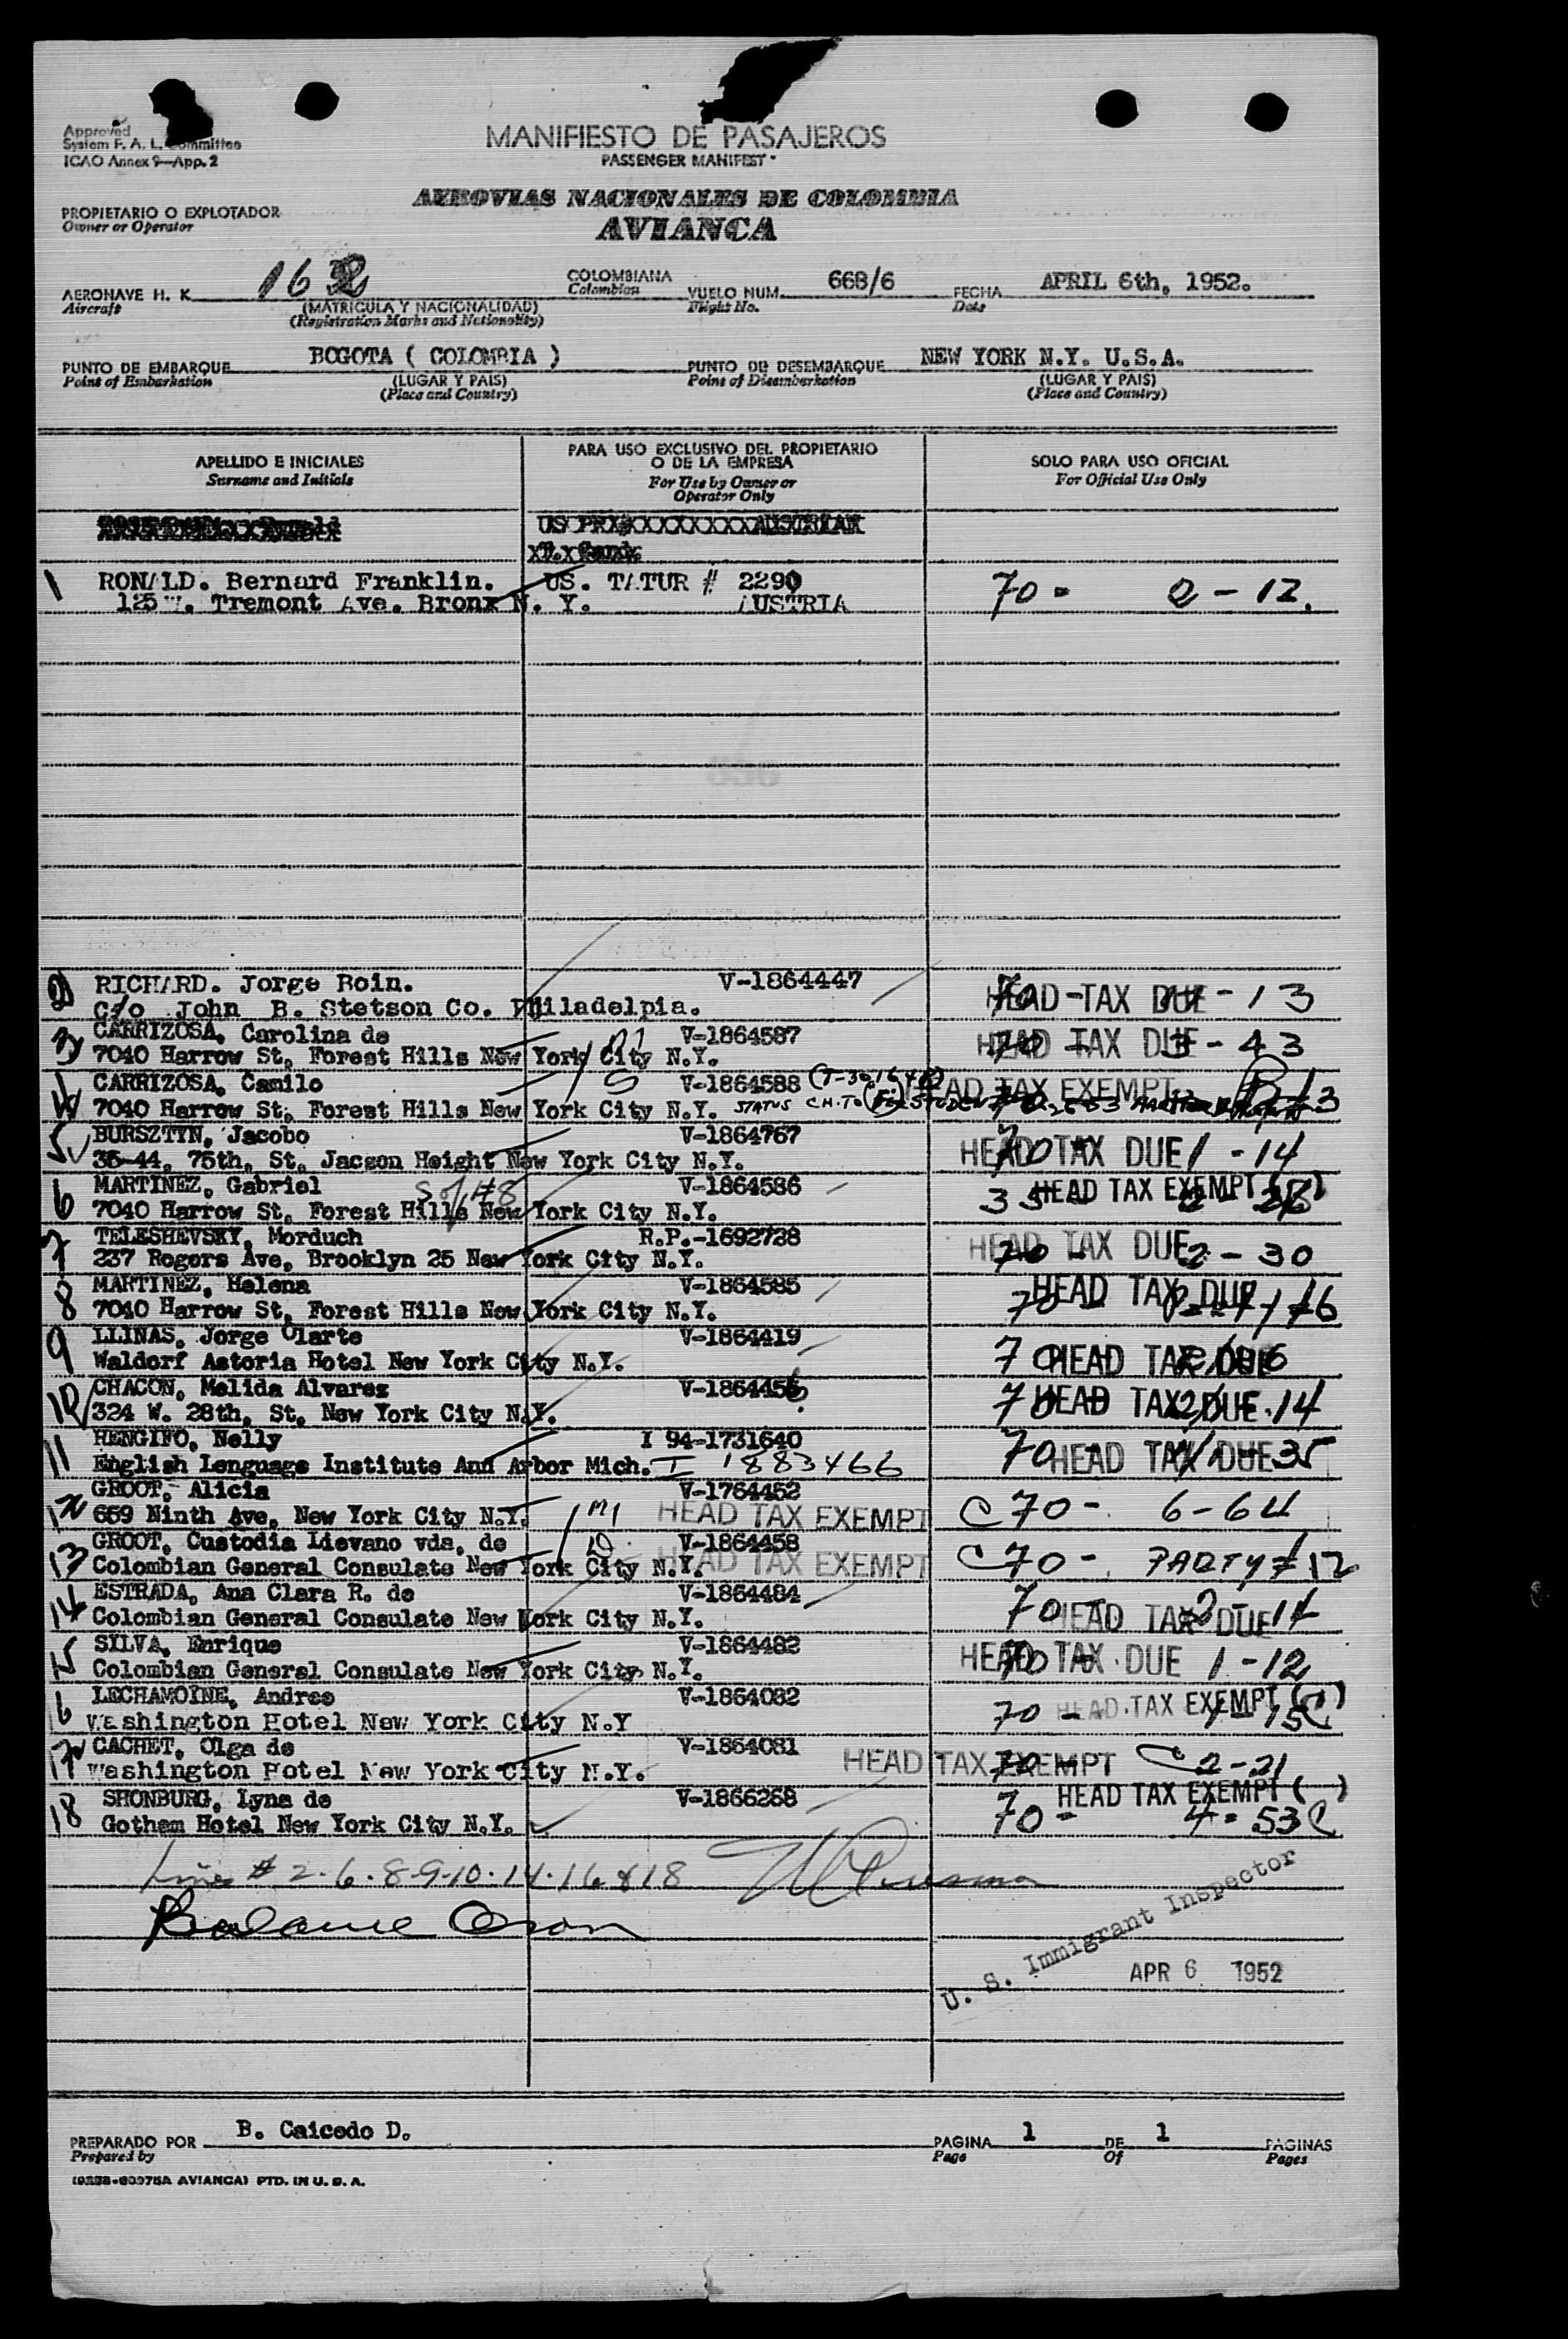 Approved
System F. A. L. Committee
ICAO Annex 9—App. 2
MANIFIESTO DE PASAJEROS
PASSENGER MANIFEST
AEROVIAS NACIONALES DE COLOMBIA
AVIANCA
PROPIETARIO O EXPLOTADOR
Owner or Operator
AERONAVE H. K. 162
Aircraft
(MATRICULA Y NACIONALIDAD)
(Registration Marks and Nationality)
COLOMBIANA
Colombian
VUELO NUM. 668/6
Flight No.
FECHA APRIL 6th, 1952.
Date
PUNTO DE EMBARQUE BOGOTA ( COLOMBIA )
Point of Embarkation
(LUGAR Y PAIS)
(Place and Country)
PUNTO DE DESEMBARQUE NEW YORK N.Y. U.S.A.
Point of Disembarkation
(LUGAR Y PAIS)
(Place and Country)
APELLIDO E INICIALES
Surname and Initials
PARA USO EXCLUSIVO DEL PROPIETARIO
O DE LA EMPRESA
For Use by Owner or
Operator Only
SOLO PARA USO OFICIAL
For Official Use Only
1 RONALD. Bernard Franklin. US. TATUR # 2290 70 - 2 - 12.
125 W. Tremont Ave. Bronx N. Y. AUSTRIA
2 RICHARD. Jorge Roin. V-1864447 HEAD TAX DUE - 13
c/o John B. Stetson Co. Philadelpia.
3 CARRIZOSA, Carolina de V-1864587 HEAD TAX DUE 3 - 43
7040 Harrow St, Forest Hills New York City N.Y.
4 CARRIZOSA, Camilo V-1864588 HEAD TAX EXEMPT
7040 Harrow St, Forest Hills New York City N.Y. STATUS CH. TO
5 BURSZTYN, Jacobo V-1864767 70 HEAD TAX DUE 1 - 14
35-44, 75th, St. Jacson Height New York City N.Y.
6 MARTINEZ, Gabriel V-1864586 35 HEAD TAX EXEMPT
7040 Harrow St, Forest Hills New York City N.Y.
7 TELESHEVSKY, Morduch R.P.-1692728 70 HEAD TAX DUE 2 - 30
237 Rogers Ave, Brooklyn 25 New York City N.Y.
8 MARTINEZ, Helena V-1864585 70 HEAD TAX DUE
7040 Harrow St, Forest Hills New York City N.Y.
9 LLINAS, Jorge Olarte V-1864419 70 HEAD TAX DUE
Waldorf Astoria Hotel New York City N.Y.
10 CHACON, Melida Alvarez V-1864456 70 HEAD TAX DUE 14
324 W. 28th, St. New York City N.Y.
11 RENGIFO, Nelly I 94-1731640 70 HEAD TAX DUE 35
English Lenguage Institute Ann Arbor Mich. I 1883466
12 GROOT, Alicia V-1764452 C 70 - 6 - 64
659 Ninth Ave, New York City N.Y. HEAD TAX EXEMPT
13 GROOT, Custodia Lievano vda, de V-1864458 C 70 - PARTY # 12
Colombian General Consulate New York City N.Y. HEAD TAX EXEMPT
14 ESTRADA, Ana Clara R. de V-1864484 70 HEAD TAX DUE
Colombian General Consulate New York City N.Y.
15 SILVA, Enrique V-1864482 70 HEAD TAX DUE 1 - 12
Colombian General Consulate New York City N.Y.
16 LECHAMOINE, Andres V-1864082 70 HEAD TAX EXEMPT (C)
Washington Hotel New York City N.Y
17 CACHET, Olga de V-1864081 HEAD TAX EXEMPT C 2 - 21
Washington Hotel New York City N.Y.
18 SHONBURG, Lyna de V-1866268 HEAD TAX EXEMPT ( )
Gotham Hotel New York City N.Y. 70 - 4 - 53 C
Lines # 2. 6. 8-9-10. 14. 16 & 18
Balance
U. S. Immigrant Inspector
APR 6 1952
PREPARADO POR B. Caicedo D.
Prepared by
PAGINA 1 DE 1 PAGINAS
Page Of Pages
AVIANCA) PTD. IN U. S. A.